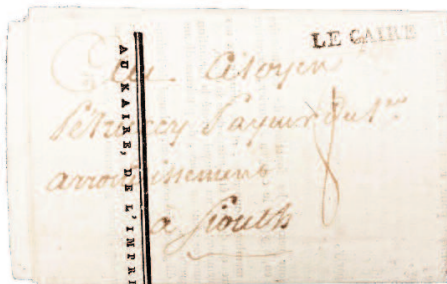 LE CAIRE
Au Citoyen
Payeur du 1er
arrondissement
a Siouth
8
AU KAIRE, DE L'IMPRI